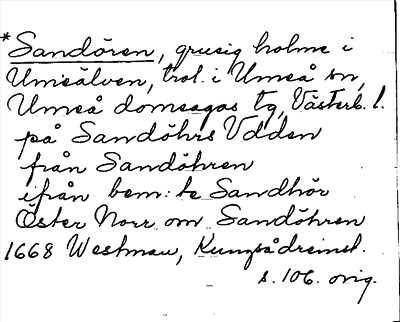 *Sandören, grusig holme i
Umeälven, trol. i Umeå sn,
Umeå domsagas tg, Västerb. l.
på Sandöhrs Udden
från Sandöhren
ifrån bem:te Sandhör
Öster Norr om Sandöhren
1668 Westman, Kungsådreinst.
s. 106. orig.